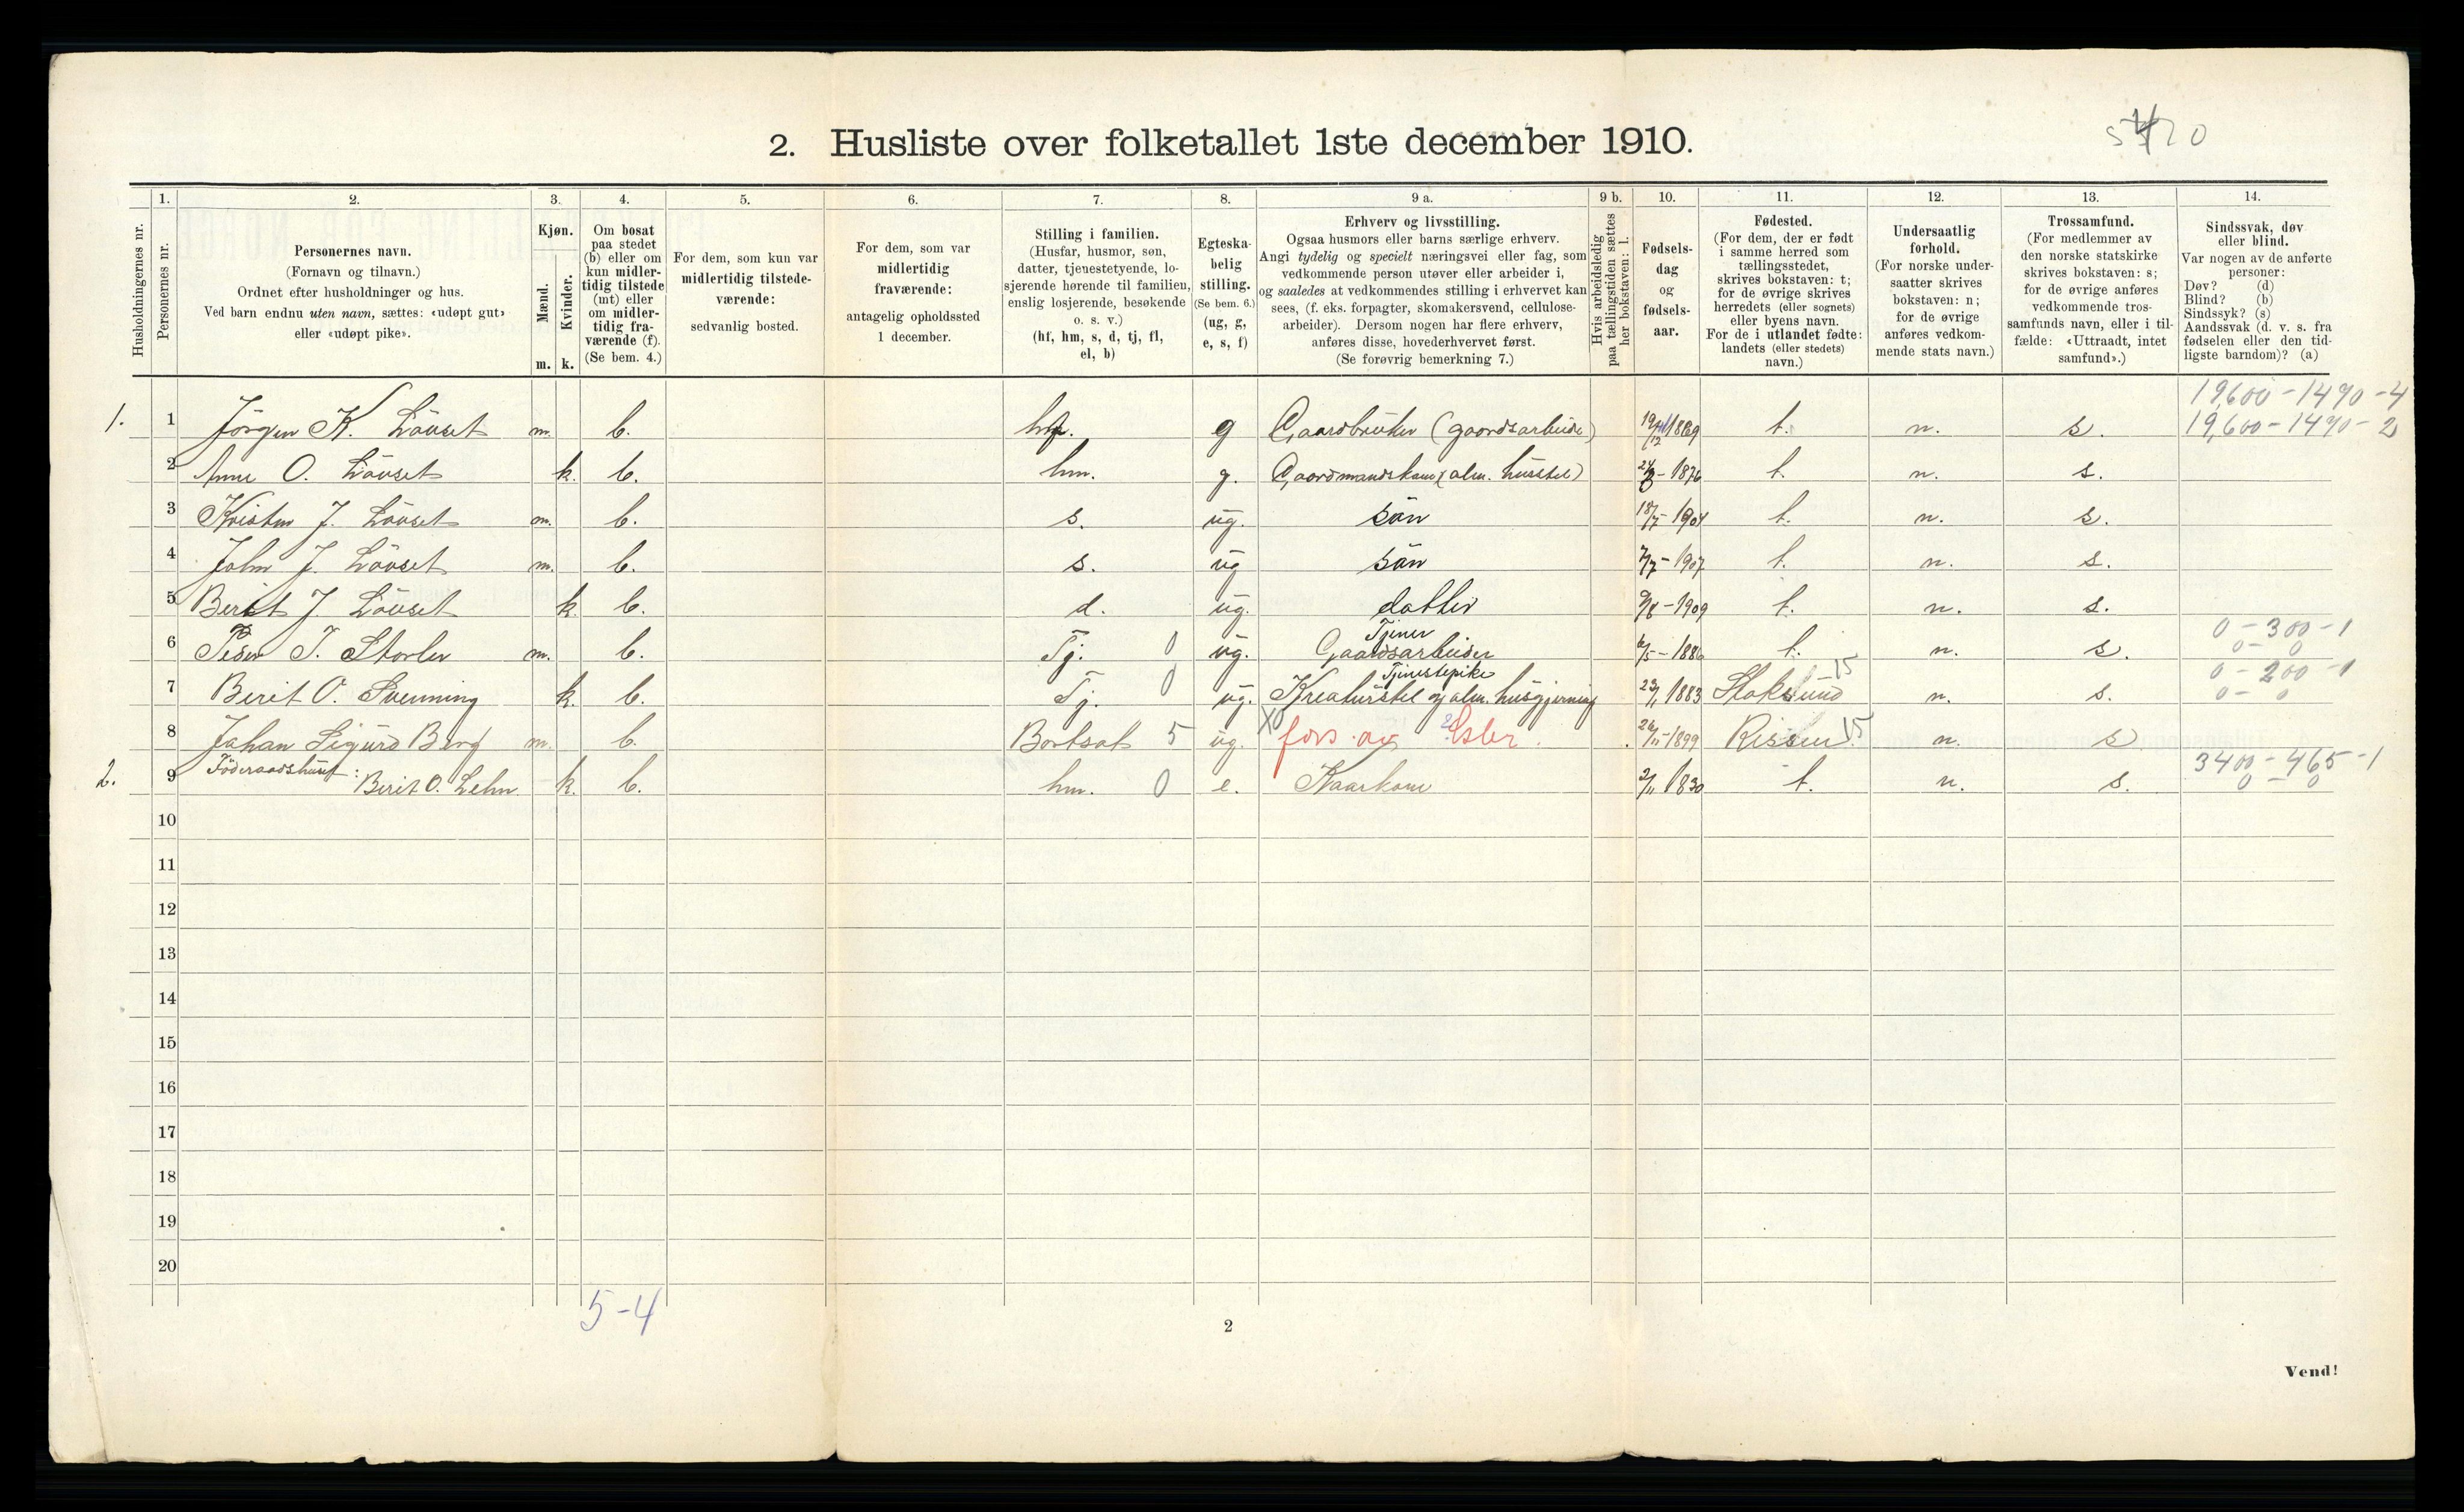 2. Husliste over folketallet 1ste december 1910.
1. 2. 3. 4. 5. 6. 7. 8. 9 a. 9 b. 10. 11. 12. 13. 14.
Husholdningernes nr.
Personernes nr.
Personernes navn.
(Fornavn og tilnavn.)
Ordnet efter husholdninger og hus.
Ved barn endnu uten navn, sættes: «udøpt gut»
eller «udøpt pike».
Kjøn.
Mænd.
Kvinder.
m. k.
Om bosat
paa stedet
(b) eller om
kun midler-
tidig tilstede
(mt) eller
om midler-
tidig fra-
værende (f).
(Se bem. 4.)
For dem, som kun var
midlertidig tilstede-
værende:
sedvanlig bosted.
For dem, som var
midlertidig
fraværende:
antagelig opholdssted
1 december.
Stilling i familien.
(Husfar, husmor, søn,
datter, tjenestetyende, lo-
sjerende hørende til familien,
enslig losjerende, besøkende
o. s. v.)
(hf, hm, s, d, tj, fl,
el, b)
Egteska-
belig
stilling.
(Se bem. 6.)
(ug, g,
e, s, f)
Erhverv og livsstilling.
Ogsaa husmors eller barns særlige erhverv.
Angi tydelig og specielt næringsvei eller fag, som
vedkommende person utøver eller arbeider i,
og saaledes at vedkommendes stilling i erhvervet kan
sees, (f. eks. forpagter, skomakersvend, cellulose-
arbeider). Dersom nogen har flere erhverv,
anføres disse, hovederhvervet først.
(Se forøvrig bemerkning 7.)
Hvis arbeidsledig
paa tællingstiden sættes
her bokstaven: l.
Fødsels-
dag
og
fødsels-
aar.
Fødested.
(For dem, der er født
i samme herred som
tællingsstedet,
skrives bokstaven: t;
for de øvrige skrives
herredets (eller sognets)
eller byens navn.
For de i utlandet fødte:
landets (eller stedets)
navn.)
Undersaatlig
forhold.
(For norske under-
saatter skrives
bokstaven: n;
for de øvrige
anføres vedkom-
mende stats navn.)
Trossamfund.
(For medlemmer av
den norske statskirke
skrives bokstaven: s;
for de øvrige anføres
vedkommende tros-
samfunds navn, eller i til-
fælde: «Uttraadt, intet
samfund».)
Sindssvak, døv
eller blind.
Var nogen av de anførte
personer:
Døv? (d)
Blind? (b)
Sindssyk? (s)
Aandssvak (d. v. s. fra
fødselen eller den tid-
ligste barndom)? (a)
19,600 - 1490 - 4
1. 1 Jörgen K. Lövset m. b. hf. g Gaardbruker (gaardsarbeide) 19/12 1869 t. n. s. 19,600 - 1490 - 2
2 Anne O. Lövset k. b. hm. g. Gaardmandskone (alm. husstel) 1876 t. n. s.
3 Kristen J. Lövset m. b. s. ug. sön 18/7 - 1904 t. n. s.
4 John J. Lövset m. b. s. ug sön 7/7 - 1907 t. n. s.
5 Berit J. Lövset k. b. d. ug. datter 9/8 - 1909 t. n. s.
Tjener 0 - 300 - 1
6 Peder J. Storler m. b. Tj. 0 ug. Gaardsarbeider 6/5 - 1886 t. n. s. 0 - 0
Tjenestepike 15 0 - 200 - 1
7 Berit O. Svenning k. b. Tj. 0 ug. Kreaturstel og alm. husgjerning 23/1 1883 Stoksund n. s. 0 - 0
8 Johan Sigurd Berg m. b. Bortsat 5 ug. X0 fors. av 26/11 - 1899 Rissen 15 n. s
Föderaadshuset: 3400 - 465 - 1
2. 9 Berit O. Lehn k. b. hm. 0 e. Kaarkone 2/11 1830 t. n. s. 0 - 0
10
11
12
13
14
15
16
17
18
19
20
5-4
2
Vend!